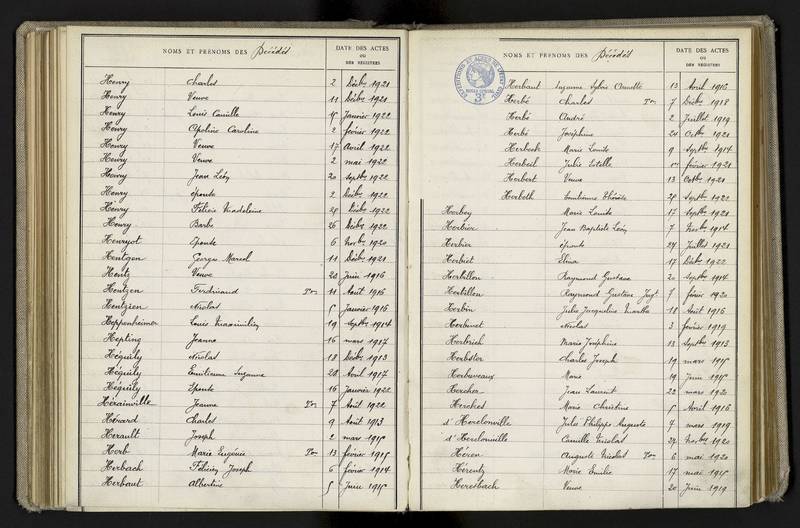 NOMS ET PRÉNOMS DES Décédés
DATE DES ACTES
OU
DES REGISTRES
Henry Charles 2 Décbre 1921
Henry Veuve 11 Décbre 1921
Henry Louis Camille 15 Janvier 1922
Henry Apoline Caroline 2 février 1922
Henry Veuve 17 Avril 1922
Henry Veuve 2 mai 1922
Henry Jean Léon 20 septbre 1922
Henry épouse 2 Décbre 1922
Henry Félicie Madeleine 20 Décbre 1922
Henry Barbe 26 Décbre 1922
Henryot épouse 6 Novbre 1920
Hentgen Georges Marcel 11 Décbre 1921
Hentz Veuve 20 Juin 1916
Hentzen Ferdinand Ton 11 Août 1916
Hentzien Nicolas 5 Janvier 1916
Heppenheimer Louis Maximilien 19 Septbre 1914
Hepting Jeanne 16 mars 1917
Héquily Nicolas 18 Décbre 1913
Héquily Emilienne Suzanne 28 Avril 1917
Héquily épouse 16 Janvier 1922
Hérainville Jeanne Ton 7 Août 1922
Hérard Charles 9 Août 1913
Herault Joseph 2 mars 1915
Herb Marie Eugénie Ton 13 février 1915
Herbach Félicien Joseph 6 février 1914
Herbaut Albertine 5 Juin 1915
NOMS ET PRÉNOMS DES Décédés
DATE DES ACTES
OU
DES REGISTRES
Herbaut Suzanne Sylvie Annette 13 Avril 1916
Herbé Charles Ton 7 Décbre 1918
Herbé André 2 Juillet 1919
Herbé Joséphine 20 Octbre 1921
Herbeck Marie Louise 9 Septbre 1914
Herbeil Julie Estelle février 1921
Herbert Veuve 13 Octbre 1921
Herbeth Emilienne Thérèse 28 Septbre 1922
Herbey Marie Louise 17 Septbre 1921
Herbier Jean Baptiste Léon 7 Novbre 1914
Herbier épouse 27 Juillet 1921
Herbiet Elina 17 Décbre 1922
Herbillon Raymond Gustave 20 Septbre 1914
Herbillon Raymond Gustave Jugt 7 févier 1920
Herbin Julie Jacqueline Marthe 18 Août 1916
Herbinet Nicolas 3 février 1919
Herbrich Marie Joséphine 18 Septbre 1913
Herbster Charles Joseph 19 mars 1915
Herbuveaux Marie 19 Juin 1915
Hercher Jean Laurent 22 mars 1920
Herches Marie Christine 5 Avril 1916
d'Herclonville Jules Philippe Auguste 4 mars 1919
d'Herclonville Camille Nicolas 29 Novbre 1920
Héren Auguste Nicolas Ton 6 mai 1920
Hérentz Marie Emilie 17 mai 1915
Heresbach Veuve 20 Juin 1919